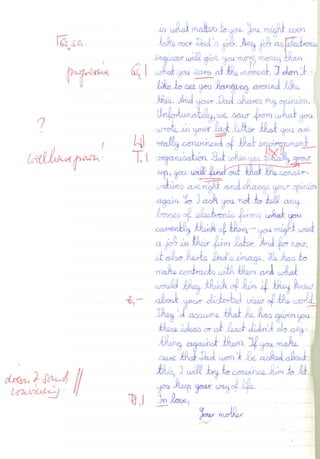 is what matters to you. You might even
take over Dad's job. Any job as electronic
engineer will give you more money than
what you earn at the moment. I don't
like to see you hanging around like
this. And your Dad shares my opinion.
Unfortunately, we saw from what you
wrote in your last letter that you are
really convinced of that environment
organisation. But when you finally grow
up, you will find out that the conser-
vatives are right and change your opinion
again. So I ask you not to tell any
bosses of electronic firms what you
currently think of them - you might want
a job in their firm later. And for now,
it also hurts Dad's image. He has to
make contracts with them and what
would they think of him if they knew
about your distorted view of the world.
They'd assume that he has given you
these ideas or at least didn't do any-
thing against them. If you make
sure that Dad won't be asked about
this, I will try to convince him to let
you keep your way of life.
In love,
Your mother
progressive
?
will have grown!
doesn't sound
convincing